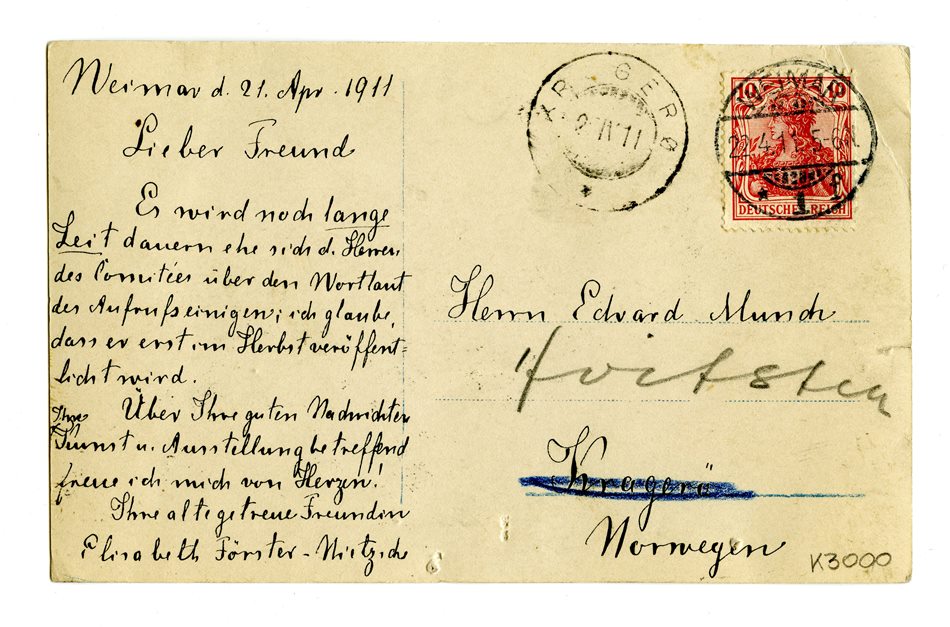 Weimar d. 21. Apr. 1911
Lieber Freund
Es wird noch lange
Zeit dauern ehe sich d. Herren
des Comitées über den Wortlaut
des Aufrufs einigen; ich glaube,
dass er erst im Herbst veröffent=
licht wird.
Über Ihre guten Nachrichten
Ihre
Kunst u. Ausstellung betreffend
freue ich mich von Herzen!
Ihre alte getreue Freundin
Elisabeth Förster-Nietzsche
KRAGERØ
IV 11
WEIMAR
22.4.11. 5-6N.
* 1 f
10 10
DEUTSCHES REICH
Herrn Edvard Munch
Hvitsten
Kragerö
Norwegen
K3000